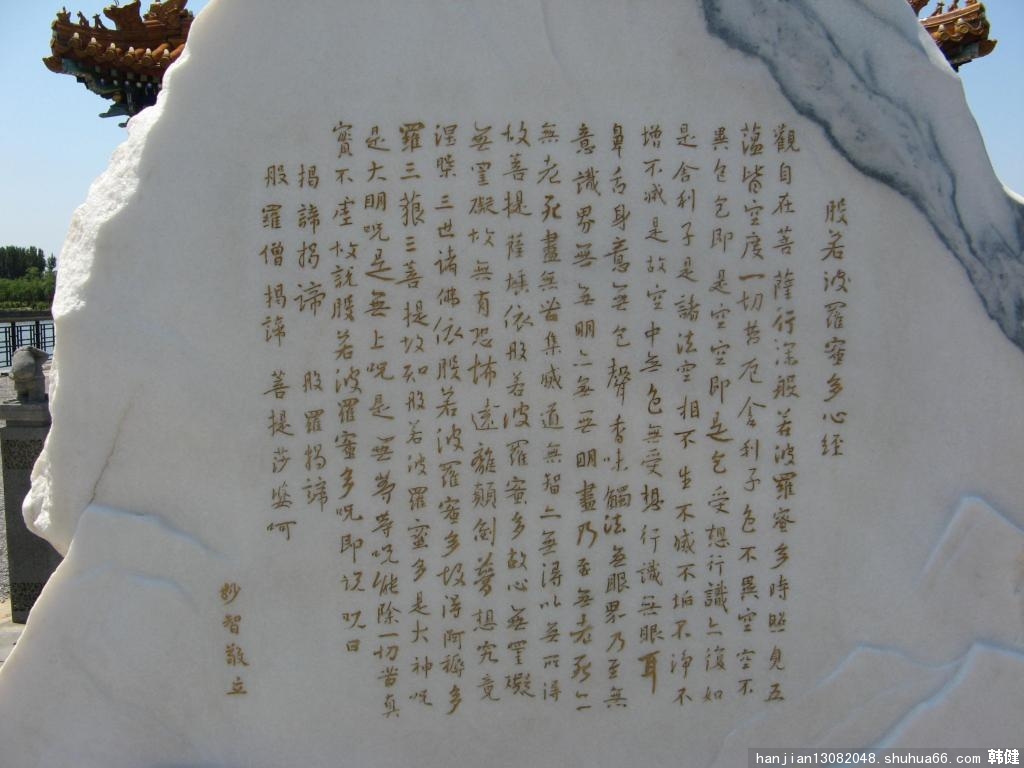 般若波羅蜜多心經
觀自在菩薩行深般若波羅蜜多時照見五
蘊皆空度一切苦厄舍利子色不異空空不
異色色即是空空即是色受想行識亠復如
是舍利子是諸法空相不生不滅不垢不淨不
增不減是故空中無色無受想行識無眼耳
鼻舌身意無色聲香味觸法無眼界乃至無
意識界無無明亠無無明盡乃至無老死亠
無老死盡無苦集滅道無智亠無得以無所得
故菩提薩埵依般若波羅蜜多故心無罣礙
無罣礙故無有恐怖遠離顛倒夢想究竟
涅槃三世諸佛依般若波羅蜜多故得阿耨多
羅三藐三菩提故知般若波羅蜜多是大神呪
是大明呪是無上呪是無等等呪能除一切苦真
實不虛故說般若波羅蜜多呪即說呪曰
揭諦揭諦 般羅揭諦
般羅僧揭諦 菩提莎婆呵
妙智敬立
hanjian13082048.shuhua66.com 韩健